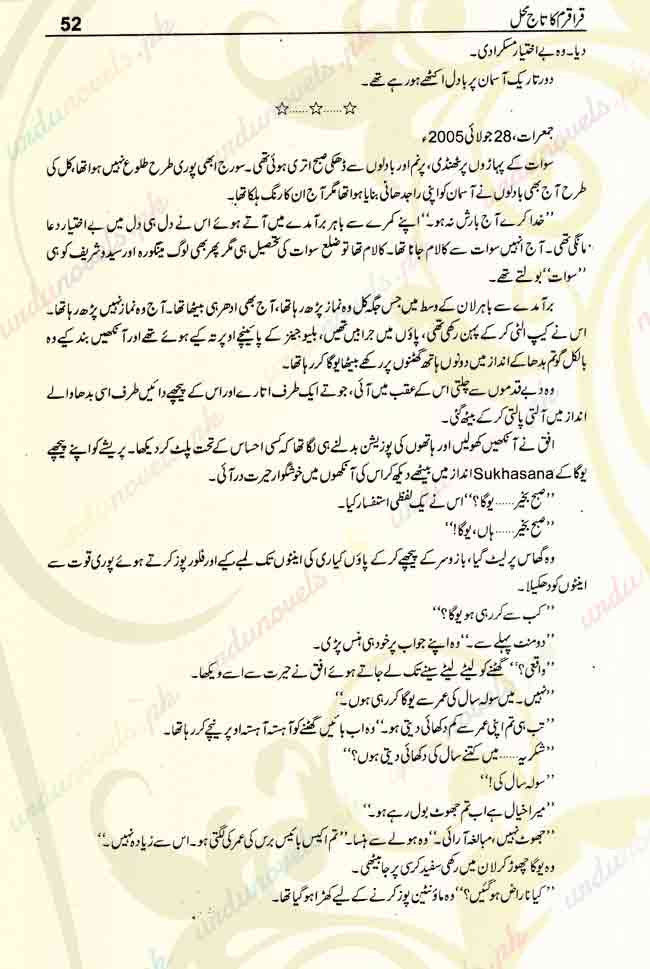 52 قراقرم کا تاج محل
دیا۔ وہ بے اختیار مسکرا دی۔
دور تاریک آسمان پر بادل اکٹھے ہو رہے تھے۔
☆......☆......☆
جمعرات، 28 جولائی 2005ء
سوات کے پہاڑوں پر ٹھنڈی، پرنم اور بادلوں سے ڈھکی صبح اتری ہوئی تھی۔ سورج ابھی پوری طرح طلوع نہیں ہوا تھا، کل کی
طرح آج بھی بادلوں نے آسمان کو اپنی راجدھانی بنایا ہوا تھا مگر آج ان کا رنگ ہلکا تھا۔
’’خدا کرے آج بارش نہ ہو۔‘‘ اپنے کمرے سے باہر برآمدے میں آتے ہوئے اس نے دل ہی دل میں بے اختیار دعا
مانگی تھی۔ آج انہیں سوات سے کالام جانا تھا۔ کالام تھا تو ضلع سوات کی تحصیل ہی مگر پھر بھی لوگ مینگورہ اور سیدو شریف کو ہی
’’سوات‘‘ بولتے تھے۔
برآمدے سے باہر لان کے وسط میں جس جگہ کل وہ نماز پڑھ رہا تھا، آج بھی ادھر ہی بیٹھا تھا۔ آج وہ نماز نہیں پڑھ رہا تھا۔
اس نے کیپ الٹی کر کے پہن رکھی تھی، پاؤں میں جرابیں تھیں، بلیو جینز کے پائینچے اوپر تہ کیے ہوئے تھے اور آنکھیں بند کیے وہ
بالکل گوتم بدھا کے انداز میں دونوں ہاتھ گھٹنوں پر رکھے بیٹھا یوگا کر رہا تھا۔
وہ دبے قدموں سے چلتی اس کے عقب میں آئی، جوتے ایک طرف اتارے اور اس کے پیچھے دائیں طرف اسی بدھا والے
انداز میں آلتی پالتی کر کے بیٹھ گئی۔
افق نے آنکھیں کھولیں اور ہاتھوں کی پوزیشن بدلنے ہی لگا تھا کہ کسی احساس کے تحت پلٹ کر دیکھا۔ پریشے کو اپنے پیچھے
یوگا کے Sukhasana انداز میں بیٹھے دیکھ کر اس کی آنکھوں میں خوشگوار حیرت در آئی۔
’’صبح بخیر...... یوگا؟‘‘ اس نے یک لفظی استفسار کیا۔
’’صبح بخیر...... ہاں، یوگا!‘‘
وہ گھاس پر لیٹ گیا، بازو سر کے پیچھے کر کے پاؤں کیاری کی اینٹوں تک لمبے کیے اور فلور پوز کرتے ہوئے پوری قوت سے
اینٹوں کو دھکیلا۔
’’کب سے کر رہی ہو یوگا؟‘‘
’’دو منٹ پہلے سے۔‘‘ وہ اپنے جواب پر خود ہی ہنس پڑی۔
’’واقعی؟‘‘ گھٹنے کو لیٹے لیٹے سینے تک لے جاتے ہوئے افق نے حیرت سے اسے دیکھا۔
’’نہیں۔ میں سولہ سال کی عمر سے یوگا کر رہی ہوں۔‘‘
’’تب ہی تم اپنی عمر سے کم دکھائی دیتی ہو۔‘‘ وہ اب بائیں گھٹنے کو آہستہ آہستہ اوپر نیچے کر رہا تھا۔
’’شکریہ...... میں کتنے سال کی دکھائی دیتی ہوں؟‘‘
’’سولہ سال کی!‘‘
’’میرا خیال ہے اب تم جھوٹ بول رہے ہو۔‘‘
’’جھوٹ نہیں، مبالغہ آرائی۔‘‘ وہ ہولے سے ہنسا۔ ’’تم اکیس بائیس برس کی عمر کی لگتی ہو۔ اس سے زیادہ نہیں۔‘‘
وہ یوگا چھوڑ کر لان میں رکھی سفید کرسی پر جا بیٹھی۔
’’کیا ناراض ہو گئیں؟‘‘ وہ ماؤنٹین پوز کرنے کے لیے کھڑا ہو گیا تھا۔
urdunovels.pk